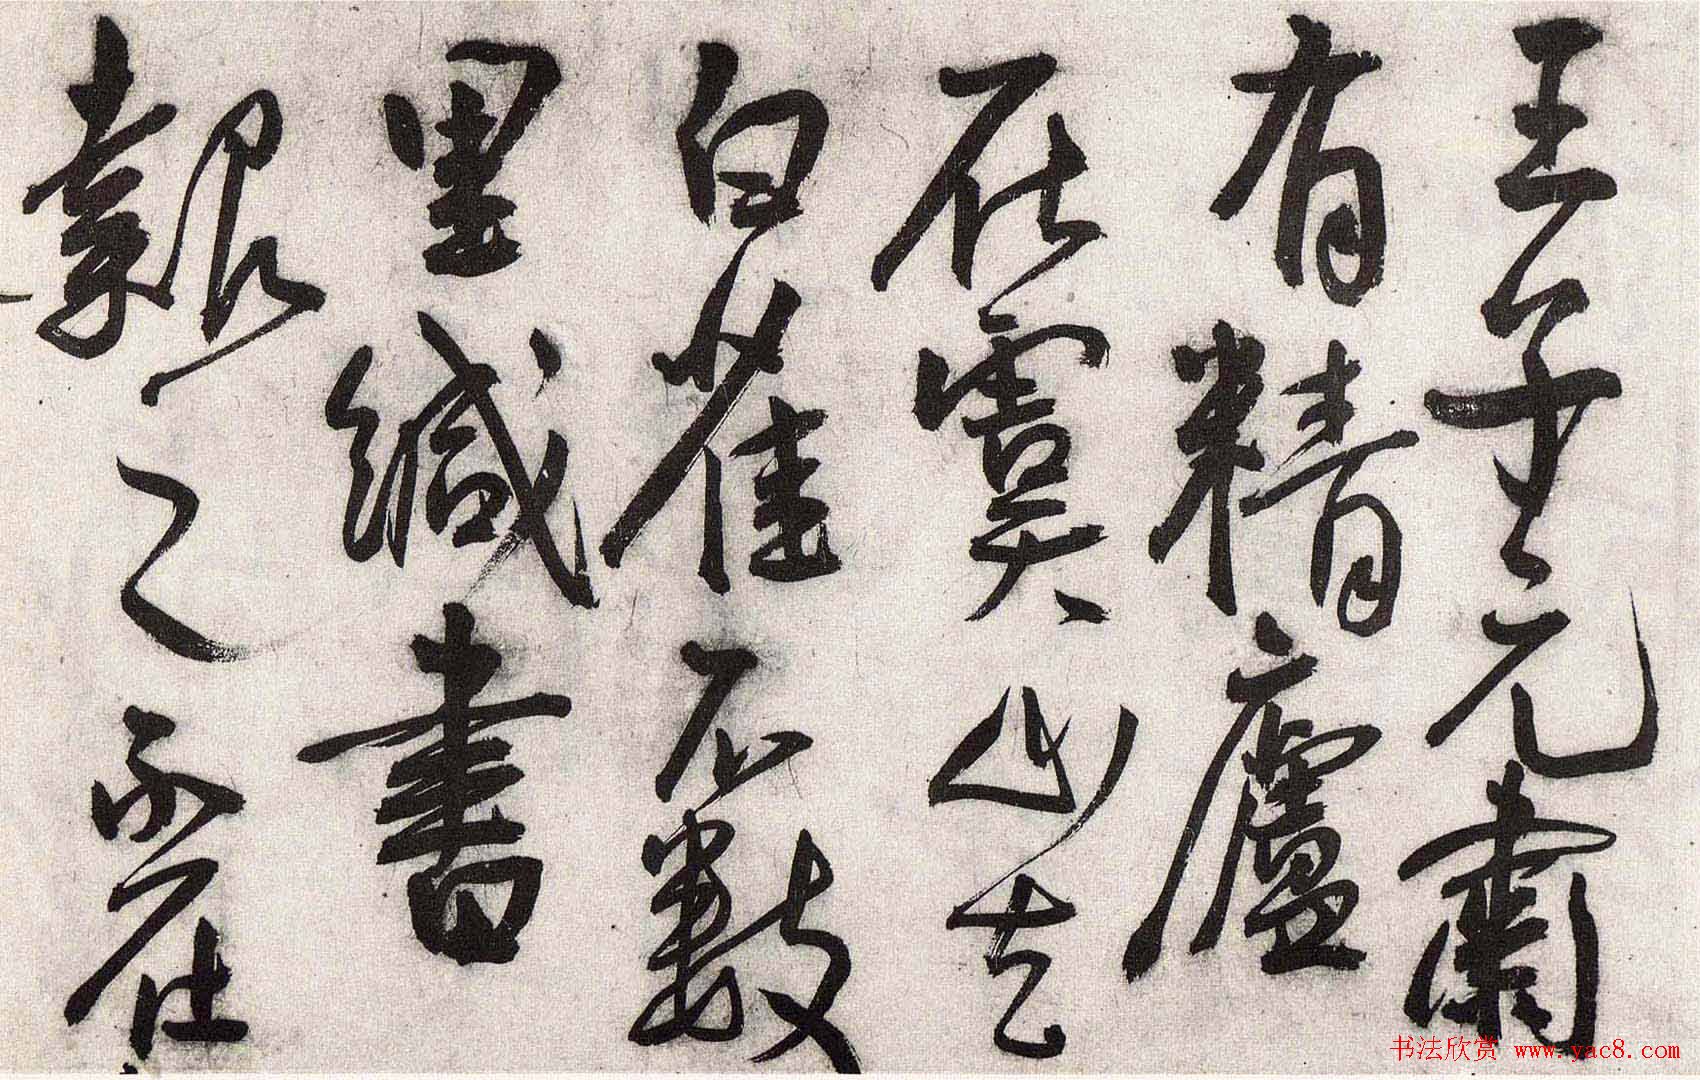 王子元肅
有精廬
在虞山去
白雀不數
里緘書
報之不在
书法欣赏 www.yac8.com